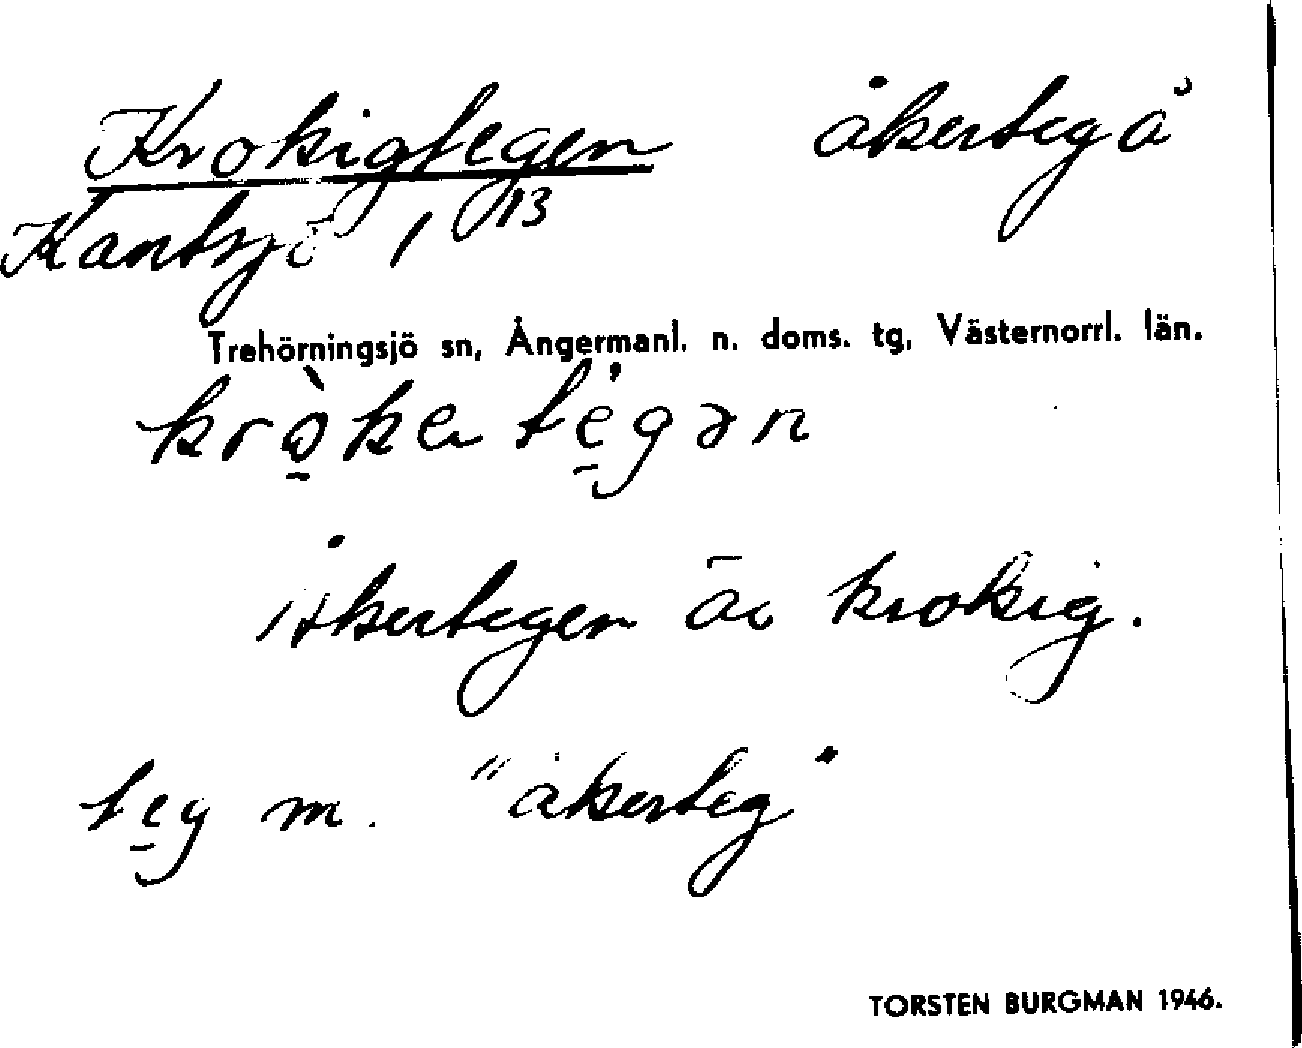 Krokigtegen åkerteg å
Kantsjö 1/13
Trehörningsjö sn, Ångermanl. n. doms. tg, Västernorrl. län.
Åkertegen är krokig.
teg m. "åkerteg"
TORSTEN BURGMAN 1946.